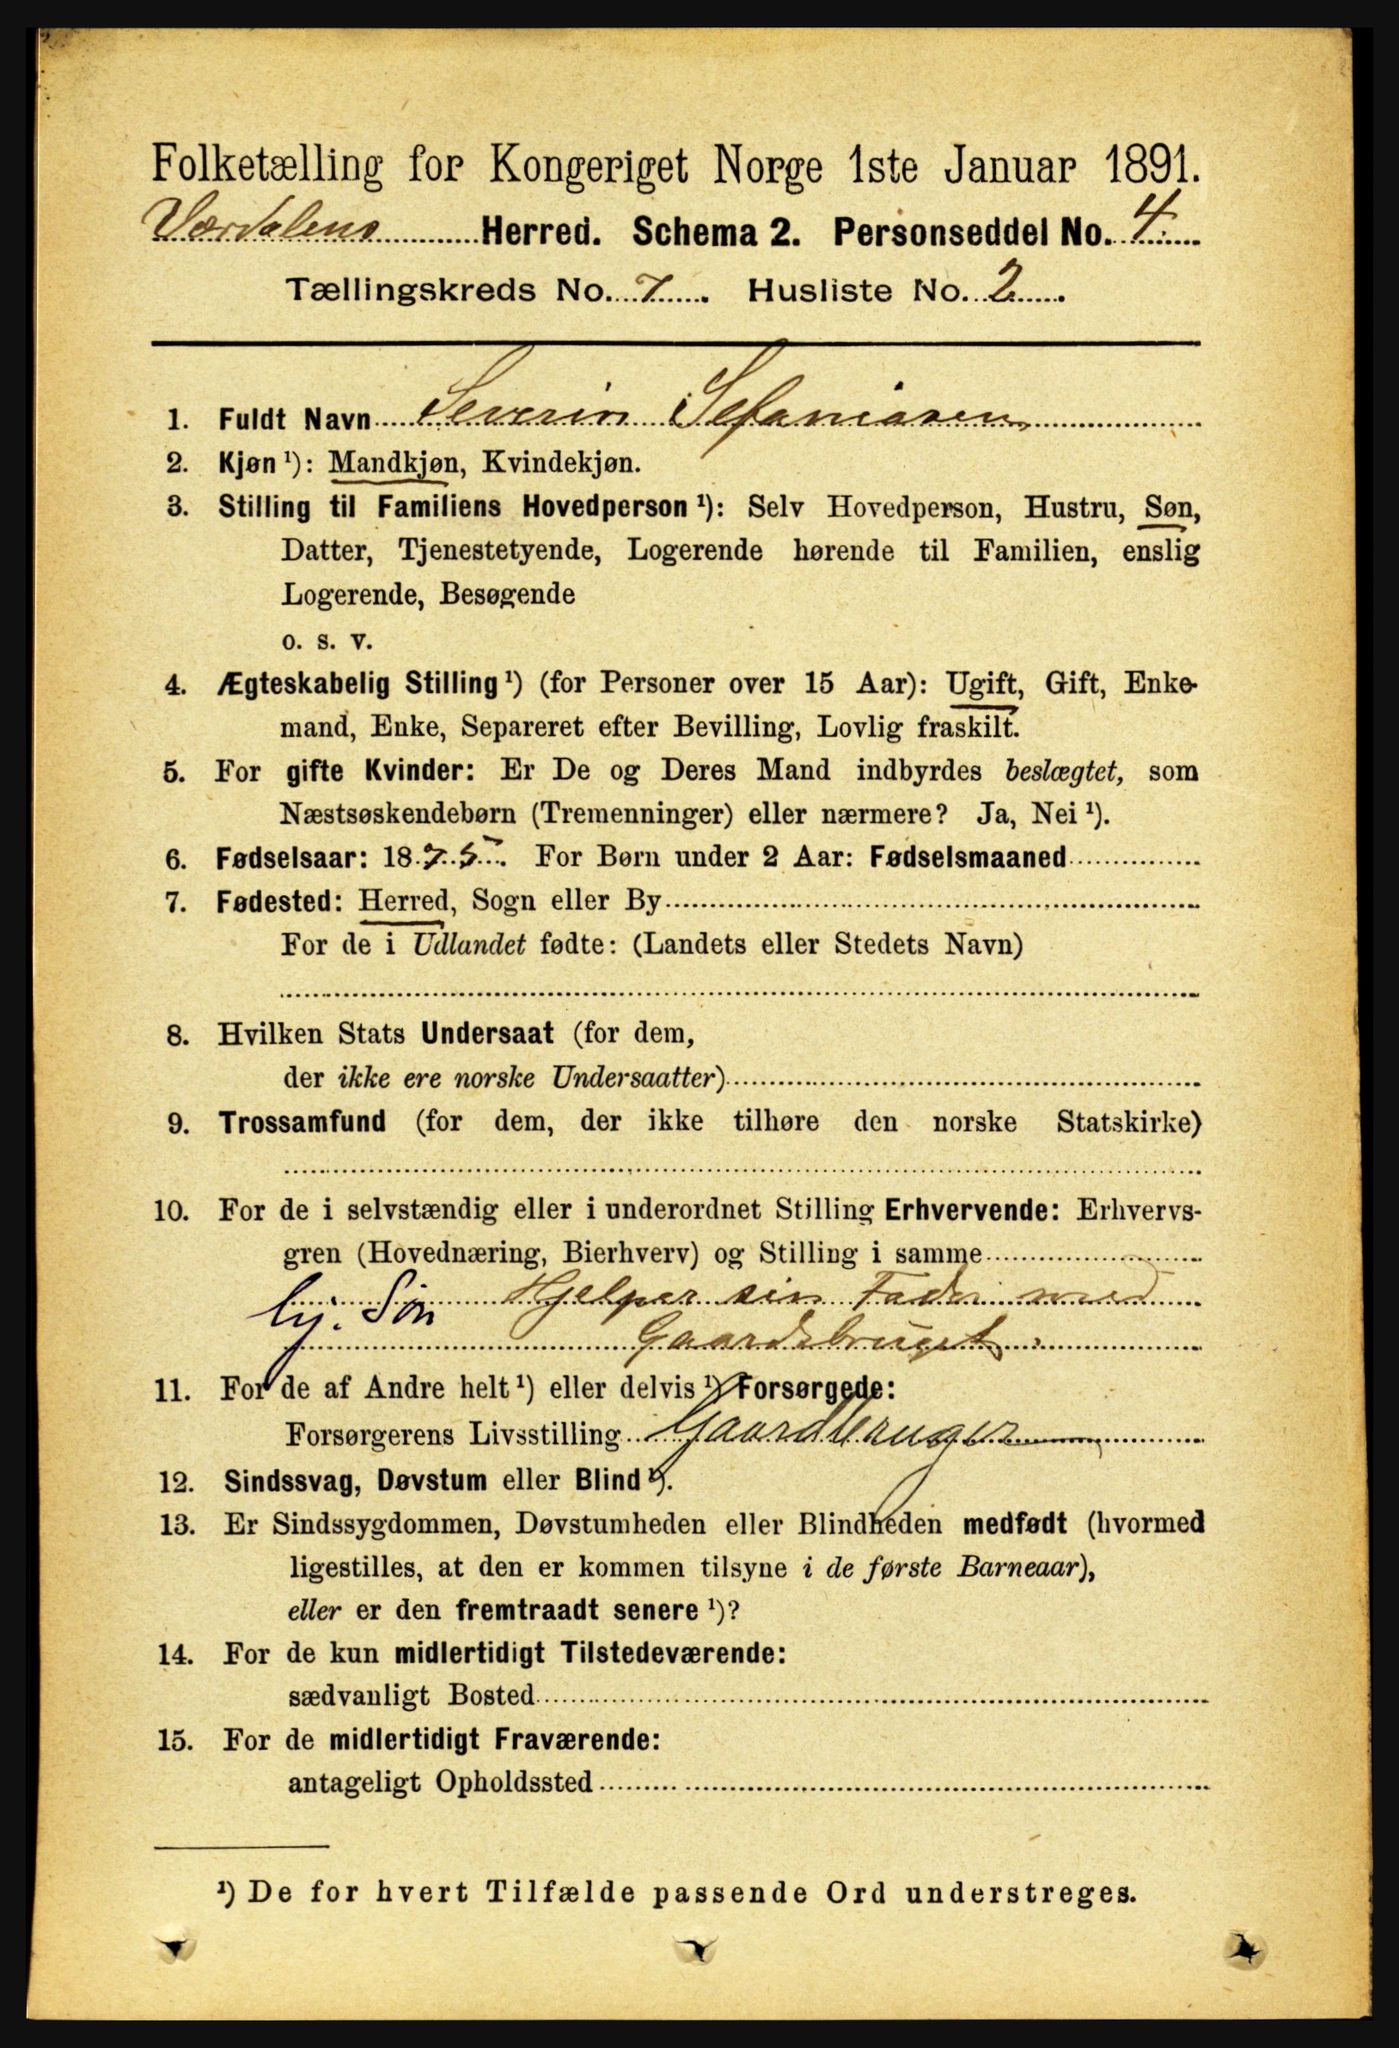 Folketælling for Kongeriget Norge 1ste Januar 1891.
Værdalens Herred. Schema 2. Personseddel No. 4.
Tællingskreds No. 7. Husliste No. 2.
1. Fuldt Navn Severin Sefaniasen
2. Kjøn ¹): Mandkjøn, Kvindekjøn.
3. Stilling til Familiens Hovedperson ¹): Selv Hovedperson, Hustru, Søn,
Datter, Tjenestetyende, Logerende hørende til Familien, enslig
Logerende, Besøgende
o. s. v.
4. Ægteskabelig Stilling ¹) (for Personer over 15 Aar): Ugift, Gift, Enke-
mand, Enke, Separeret efter Bevilling, Lovlig fraskilt.
5. For gifte Kvinder: Er De og Deres Mand indbyrdes beslægtet, som
Næstsøskendebørn (Tremenninger) eller nærmere? Ja, Nei ¹).
6. Fødselsaar: 1875. For Børn under 2 Aar: Fødselsmaaned
7. Fødested: Herred, Sogn eller By
For de i Udlandet fødte: (Landets eller Stedets Navn)
8. Hvilken Stats Undersaat (for dem,
der ikke ere norske Undersaatter)
9. Trossamfund (for dem, der ikke tilhøre den norske Statskirke)
10. For de i selvstændig eller i underordnet Stilling Erhvervende: Erhvervs-
gren (Hovednæring, Bierhverv) og Stilling i samme
hj. Søn Hjelper sin Fader med
Gaardsbruget.
11. For de af Andre helt ¹) eller delvis ¹) Forsørgede:
Forsørgerens Livsstilling Gaardbruger
12. Sindssvag, Døvstum eller Blind ¹).
13. Er Sindssygdommen, Døvstumheden eller Blindheden medfødt (hvormed
ligestilles, at den er kommen tilsyne i de første Barneaar),
eller er den fremtraadt senere ¹)?
14. For de kun midlertidigt Tilstedeværende:
sædvanligt Bosted
15. For de midlertidigt Fraværende:
antageligt Opholdssted
¹) De for hvert Tilfælde passende Ord understreges.